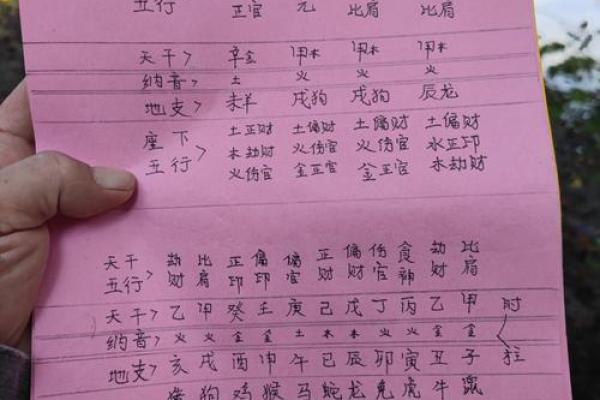 五行 正官 元 比肩 比肩
天干> 辛金 甲木 甲木 甲木
纳音> 土 火 火 火
地支> 未羊 戌狗 戌狗 辰龙
座下 土正财 土偏财 土偏财 土偏财
木劫财 火伤官 火伤官 水正印
五行> 火伤官 金正官 金正官 木劫财
天干 劫 比 正 偏 偏 正 偏 伤 食 劫 比
五行> 财 肩 印 印 官 财 财 官 神 财 肩
天干> 乙 甲 癸 壬 庚 己 戊 丁 丙 乙 甲 时
纳音> 火 火 金 金 土 木 木 火 火 金 金
地支> 亥 戌 酉 申 午 巳 辰 卯 寅 丑 子 柱
猪 狗 鸡 猴 马 蛇 龙 兔 虎 牛 鼠